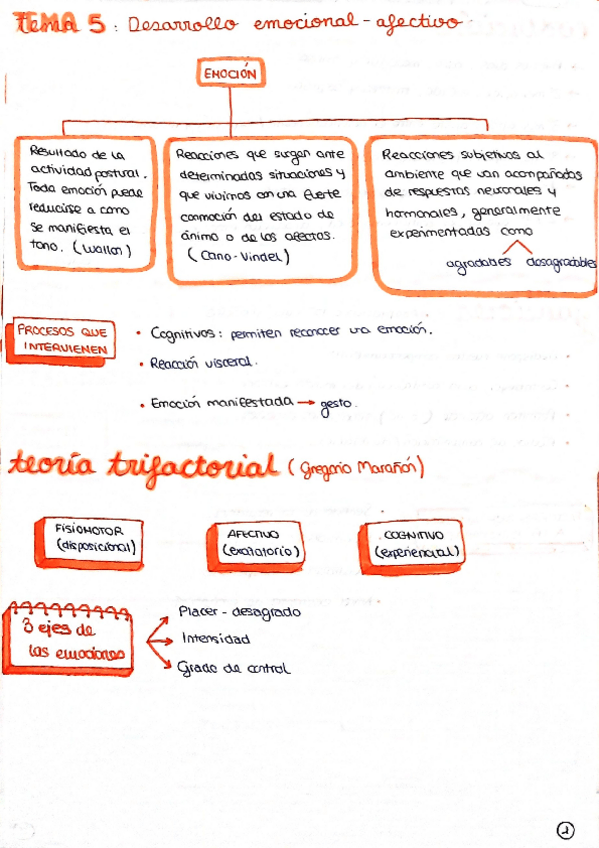 TEMA 5: Desarrollo emocional-afectivo
EMOCIÓN
Resultado de la
actividad postural.
Toda emoción puede
reducirse a como
se manifiesta el
tono. (Wallon)
Reacciones que surgen ante
determinadas situaciones y
que vivimos con una fuerte
conmoción del estado de
ánimo o de los afectos.
(Cano-Vindel)
Reacciones subjetivas al
ambiente que van acompañadas
de respuestas neuronales y
hormonales, generalmente
experimentadas como
agradables desagradables
PROCESOS QUE
INTERVIENEN
• Cognitivos: permiten reconocer una emoción.
• Reacción visceral.
• Emoción manifestada → gesto.
teoría trifactorial (Gregorio Marañón)
FISIOMOTOR
(disposicional)
AFECTIVO
(excitatorio)
COGNITIVO
(experiencial)
3 ejes de
las emociones
Placer - desagrado
Intensidad
Grado de control
1